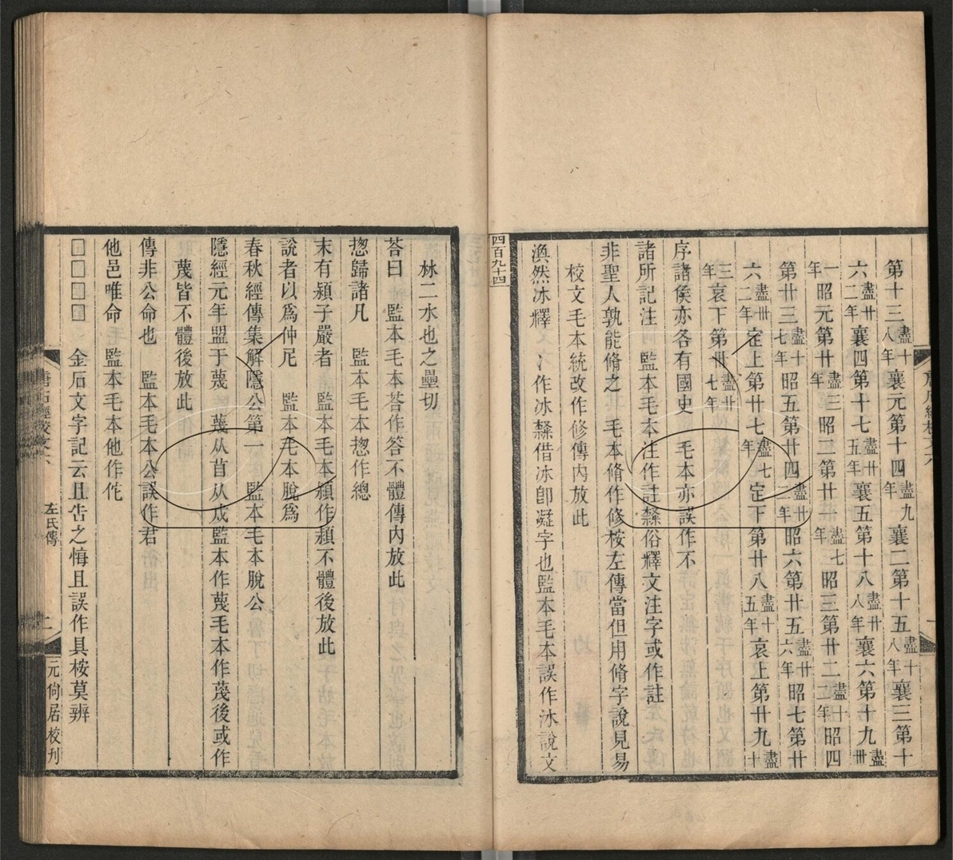 第十三盡十八年襄元第十四盡九年襄二第十五盡十八年襄三第十
六盡廿二年襄四第十七盡廿五年襄五第十八盡廿八年襄六第十九盡卅
一年昭元第廿盡三年昭二第廿一盡七年昭三第廿二盡十二年昭四
第廿三盡十七年昭五第廿四盡廿二年昭六第廿五盡廿六年昭七第廿
六盡卅二年定上第廿七盡七年定下第廿八盡十五年哀上第廿九盡十
三年哀下第卅盡廿七年
序諸侯亦各有國史 毛本亦誤作不
諸所記注 監本毛本注作註隸俗釋文注字或作註
非聖人孰能脩之 毛本脩作修桉左傳當但用脩字說見易
校文毛本統改作修傳內放此
渙然冰釋 冫作冰隸借冰卽凝字也監本毛本誤作沐說文
四百九十四
林二水也之壘切
荅曰 監本毛本荅作答不體傳內放此
惣歸諸凡 監本毛本惣作總
末有潁子嚴者 監本毛本潁作頴不體後放此
說者以爲仲尼 監本毛本脫爲
春秋經傳集解隱公第一 監本毛本脫公
隱經元年盟于蔑 蔑从苜从戍監本作蔑毛本作蔑後或作
蔑皆不體後放此
傳非公命也 監本毛本公誤作君
他邑唯命 監本毛本他作佗
□□□□ 金石文字記云且告之悔且誤作具桉莫辨
唐石經校文六
左氏傳
二
元尙居校刊